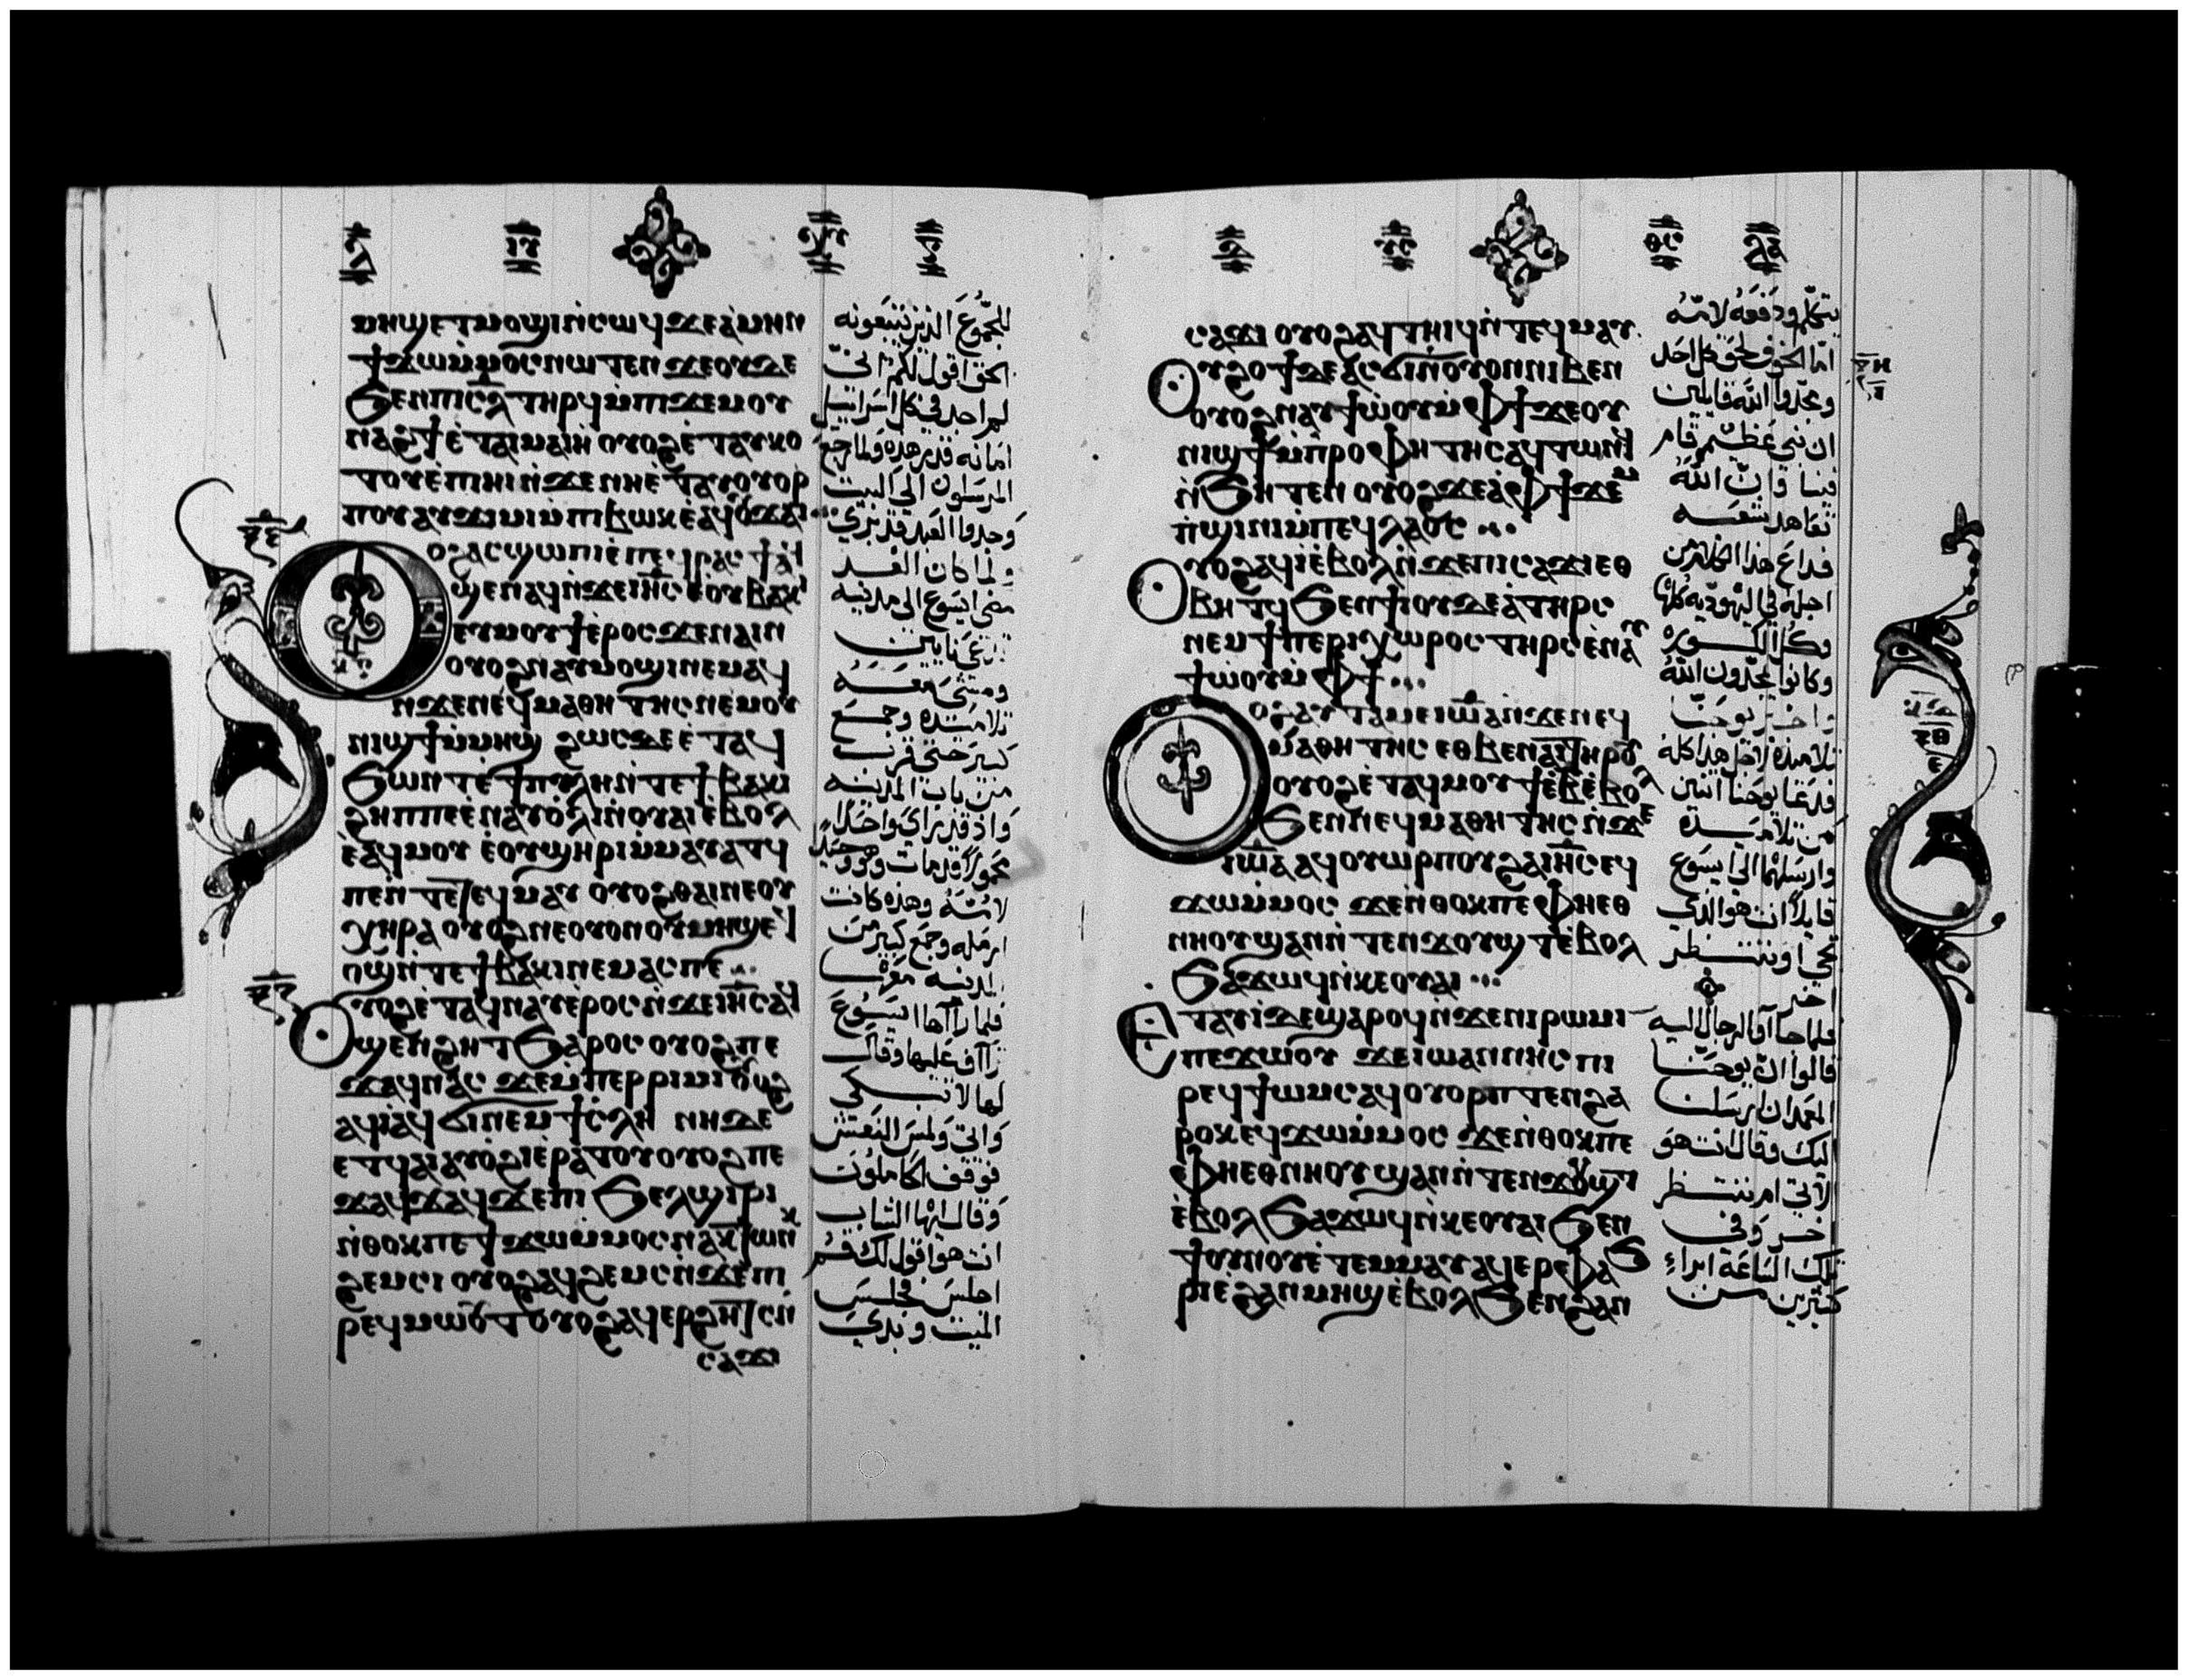 ⲙⲏϣ ⲉⲧⲙⲟϣⲓ ⲛ̀ⲥⲱϥ ϫⲉ ⲁ̀ⲙⲏⲛ
ϯϫⲱ ⲙ̀ⲙⲟⲥ ⲛⲱⲧⲉⲛ ϫⲉ ⲟⲩⲇⲉ
ϧⲉⲛ ⲡⲓⲥ̅ⲗ ⲧⲏⲣϥ ⲙ̀ⲡⲓϫⲉⲙ ⲟⲩ
ⲛⲁϩϯ ⲉ̀ⲧⲁⲓⲙⲁⲓⲏ ⲟⲩⲟϩ ⲉ̀ⲧⲁⲩⲕⲟ
ⲧⲟⲩ ⲉ̀ⲡⲓⲏⲓ ⲛ̀ϫⲉ ⲛⲏ ⲉ̀ⲧⲁⲩⲟⲩⲟⲣ
ⲡⲟⲩ ⲁⲩϫⲓⲙⲓ ⲙ̀ⲡⲓⲃⲱⲕ ⲉⲁϥⲟⲩϫⲁⲓ
ⲟϩ ⲁⲥϣⲱⲡⲓ ⲉ̀ⲡⲉϥⲣⲁⲥϯ ⲁϥ
ϣⲉⲛⲁϥ ⲛ̀ϫⲉ ⲓⲏ̅ⲥ ⲉ̀ⲟⲩⲃⲁⲕⲓ
ⲉⲩⲙⲟⲩϯ ⲉ̀ⲣⲟⲥ ϫⲉ ⲛⲁⲓⲛ
ⲟⲩⲟϩ ⲛⲁⲩⲙⲟϣⲓ ⲛⲉⲙⲁϥ
ⲛ̀ϫⲉ ⲛⲉϥⲙⲁⲑⲏⲧⲏⲥ ⲛⲉⲙ ⲟⲩ
ⲛⲓϣϯ ⲙ̀ⲙⲏϣ ϩⲱⲥ ϫⲉ ⲉ̀ⲧⲁϥ
ϧⲱⲛⲧ ⲉ̀ϯⲡⲩⲗⲏ ⲛ̀ⲧⲉ ϯⲃⲁⲕⲓ
ϩⲏⲡⲡⲉ ⲉ̀ⲛⲁⲩⲟ̀ⲗⲓ ⲛ̀ⲟⲩⲁⲓ ⲉ̀ⲃⲟⲗ
ⲉ̀ⲁϥⲙⲟⲩ ⲉ̀ⲟⲩϣⲏⲣⲓ ⲙ̀ⲙⲁⲩⲁⲧϥ
ⲡⲉ ⲛ̀ⲧⲉ ⲧⲉϥⲙⲁⲩ ⲟⲩⲟϩ ⲑⲁⲓ ⲛⲉ ⲟⲩ
ⲭⲏⲣⲁ ⲟⲩⲟϩ ⲛⲉ ⲟⲩⲟⲛ ⲟⲩⲙⲏϣ ⲉϥ
ⲟϣ ⲛ̀ⲧⲉ ϯⲃⲁⲕⲓ ⲛⲉⲙⲁⲥ ⲡⲉ
ⲩⲟϩ ⲉ̀ⲧⲁϥⲛⲁⲩ ⲉ̀ⲣⲟⲥ ⲛ̀ϫⲉ ⲓⲏ̅ⲥ ⲁϥ
ϣⲉⲛϩⲏⲧ ϧⲁⲣⲟⲥ ⲟⲩⲟϩ ⲡⲉ
ϫⲁϥ ⲛⲁⲥ ϫⲉ ⲙ̀ⲡⲉⲣⲣⲓⲙⲓ ⲟⲩⲟϩ
ⲁϥⲓ̀ ⲁϥϭⲓⲛⲉⲙ ϯⲥ̀ⲗⲏ ⲛⲏ ⲇⲉ
ⲉⲧϥⲁⲓ ⲁⲩⲟ̀ϩⲓ ⲉ̀ⲣⲁⲧⲟⲩ ⲟⲩⲟϩ ⲡⲉ
ϫⲁϥ ϫⲉ ⲡⲓϧⲉⲗϣⲓⲣⲓ
ⲛ̀ⲑⲟⲕ ⲡⲉ ϯϫⲱ ⲙ̀ⲙⲟⲥ ⲛⲁⲕ ⲧⲱⲛⲕ
ϩⲉⲙⲥⲓ ⲟⲩⲟϩ ⲁϥϩⲉⲙⲥⲓ ⲛ̀ϫⲉ ⲡⲓ
ⲣⲉϥⲙⲱⲟⲩⲧ ⲟⲩⲟϩ ⲁϥⲉⲣϩⲏⲧⲥ ⲛ̀
ⲥⲁϫⲓ
للجمع الذين يتبعونه
الحق اقول لكم انى
لم اجد فى كل اسرائيل
امانه قدر هذه ولما رجع
المرسلون الى البيت
وجدوا العبد قد برى
ولما كان الغد
مضى ايسوع الى مدينه
تدعى نايين
ومشى معه
تلاميذه وجمع
كبير حتى قرب
من باب المدينه
واذ قد راى واحدًا
محمولًا قد مات وحيد
لامه وهذه كانت
ارمله وجمع كبير من
المدينه معها
فلما راها ايسوع
تراف عليها وقال
لها لا تبكى
واتى ولمس النعش
فوقف الحاملون
وقال ايها الشاب
انت هو اقول لك قم
اجلس فجلس
الميت وبدى
ⲥⲁϫⲓ ⲟⲩⲟϩ ⲁϥⲧⲏⲓϥ ⲛ̀ⲧⲉϥⲙⲁⲩ
ⲩϩⲟϯ ⲇⲉ ⲁⲥϭⲓ ⲛ̀ⲟⲩⲟⲛ ⲛⲓⲃⲉⲛ
ⲟⲩⲟϩ ⲛⲁⲩϯⲱ̀ⲟⲩ ⲙ̀ⲫϯ ϫⲉ ⲟⲩ
ⲛⲓϣϯ ⲙ̀ⲡⲣⲟⲫⲏⲧⲏⲥ ⲁϥⲧⲱⲛϥ
ⲛ̀ϧⲏⲧⲉⲛ ⲟⲩⲟϩ ϫⲉ ⲁ̀ ⲫϯ ϫⲉⲙ
ⲡ̀ϣⲓⲛⲓ ⲙ̀ⲡⲉϥⲗⲁⲟⲥ
ⲩⲟϩ ⲁϥⲓ̀ ⲉ̀ⲃⲟⲗ ⲛ̀ϫⲉ ⲡⲓⲥⲁϫⲓ ⲉⲑ
ⲃⲏⲧϥ ϧⲉⲛ ϯⲓⲟⲩⲇⲉⲁ̀ ⲧⲏⲣⲥ
ⲛⲉⲙ ϯⲡⲉⲣⲓⲭⲱⲣⲟⲥ ⲧⲏⲣⲥ ⲉ̀ⲛⲁⲩ
ϯⲱ̀ⲟⲩ ⲙ̀ⲫϯ
ⲟϩ ⲁⲩⲧⲁⲙⲉ ⲓⲱ̅ⲁ ⲛ̀ϫⲉ ⲛⲉϥ
ⲙⲁⲑⲏⲧⲏⲥ ⲉⲑⲃⲉ ⲛⲁⲓ ⲧⲏⲣⲟⲩ
ⲟⲩⲟϩ ⲉ̀ⲧⲁϥⲙⲟⲩϯ ⲉ̀ⲃ̅ ⲉ̀ⲃⲟⲗ
ϧⲉⲛ ⲛⲉϥⲙⲁⲑⲏⲧⲏⲥ ⲛ̀ϫⲉ
ⲓⲱ̅ⲁ ⲁϥⲟⲩⲱⲣⲡⲟⲩ ϩⲁ ⲓⲏ̅ⲥ ⲉϥ
ϫⲱ ⲙ̀ⲙⲟⲥ ϫⲉ ⲛ̀ⲑⲟⲕ ⲡⲉ ⲫⲏⲉⲑ
ⲛⲏⲟⲩ ϣⲁⲛ ⲛ̀ⲧⲉⲛϫⲟⲩϣⲧ ⲉ̀ⲃⲟⲗ
ϧⲁϫⲱϥ ⲛ̀ⲕⲉⲟⲩⲁⲓ
ⲉⲧⲁⲩⲓ̀ ⲇⲉ ϣⲁⲣⲟϥ ⲛ̀ϫⲉ ⲛⲓⲣⲱⲙⲓ
ⲡⲉϫⲱⲟⲩ ϫⲉ ⲓⲱⲁⲛⲛⲏⲥ ⲡⲓ
ⲣⲉϥϯⲱⲙⲥ ⲁϥⲟⲩⲟⲣⲡⲧⲉⲛ ϩⲁ
ⲣⲟⲕ ⲉϥϫⲱ ⲙ̀ⲙⲟⲥ ϫⲉ ⲛ̀ⲑⲟⲕ ⲡⲉ
ⲫⲏⲉⲑⲛⲏⲟⲩ ϣⲁⲛ ⲛ̀ⲧⲉⲛϫⲟⲩϣⲧ
ⲉ̀ⲃⲟⲗ ϧⲁϫⲱϥ ⲛ̀ⲕⲉⲟⲩⲁⲓ ϧⲉⲛ
ϯⲟⲩⲛⲟⲩ ⲉ̀ⲧⲉⲙⲙⲁⲩ ⲁϥⲉⲣⲫⲁϧ
ⲣⲓ ⲉ̀ϩⲁⲛⲙⲏϣ ⲉ̀ⲃⲟⲗ ϧⲉⲛ ϩⲁⲛ
يتكلم ودفعه لامه
اما الخوف لحق كل احد
ومجدوا الله قايلين
ان نبى عظيم قام
فينا وان الله
تعاهد شعبه
فذاع هذا الكلام من
اجله فى اليهوديه كلها
وكل الكوره
وكانوا يمجدون الله
واخبر يوحنا
تلاميذه لاجل هذا كله
فدعا يوحنا اثنين
من تلاميذه
وارسلهما الى ايسوع
قايلًا انت هو الذى
يجى او ننتظر
اخر
فلما جا اوليك الرجال اليه
قالوا ان يوحنا
المعمدان ارسلنا
اليك وقال انت هو
الاتى ام ننتظر
اخر وفى
تلك الساعة ابراء
كثيرين من